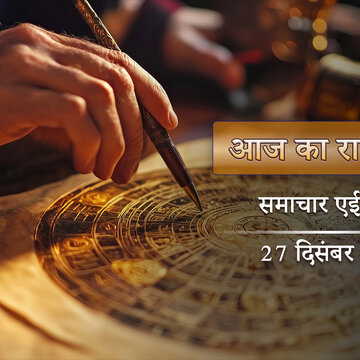 आज का रा
समाचार एडी
27 दिसंबर